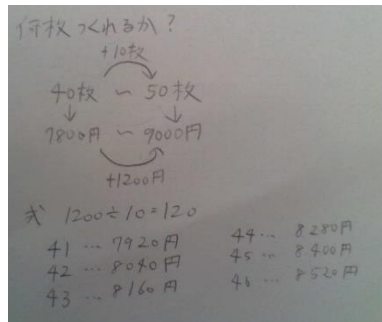 何枚つくれるか?
+10枚
40枚 〜 50枚
↓ ↓
7800円 〜 9000円
+1200円
式 1200÷10=120
41 … 7920円
42 … 8040円
43 … 8160円
44 … 8280円
45 … 8400円
46 … 8520円